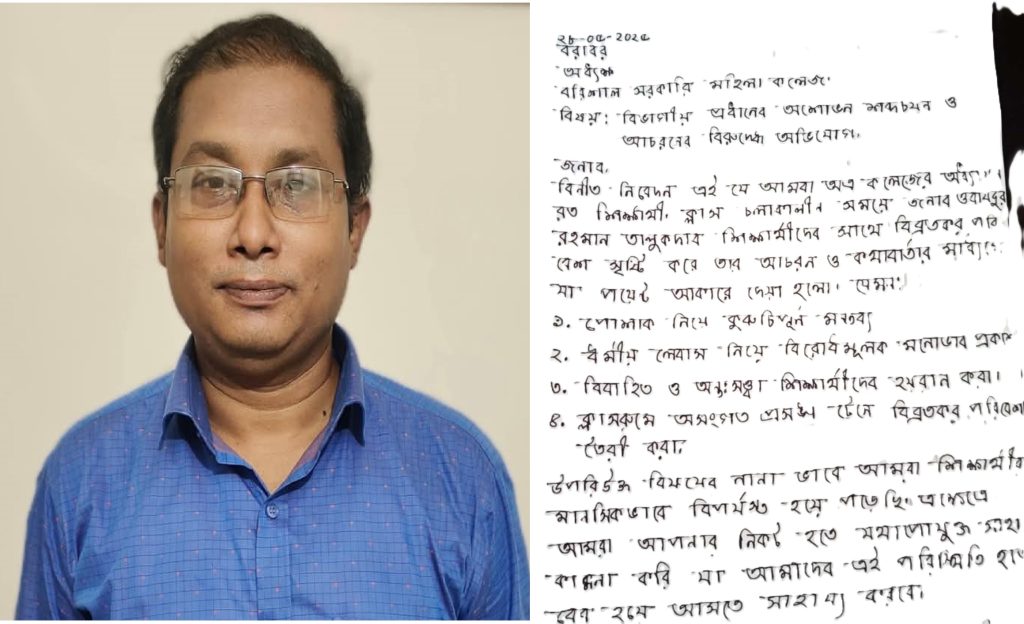 ২৮-০৫-২০২৫
বরাবর
অধ্যক্ষ
বরিশাল সরকারি মহিলা কলেজ।
বিষয়: বিভাগীয় প্রধানের অশোভন শব্দচয়ন ও
আচরনের বিরুদ্ধে অভিযোগ।
জনাব,
বিনীত নিবেদন এই যে আমরা অত্র কলেজের
রত শিক্ষার্থী। ক্লাস চলাকালীন সময়ে জনাব ওবায়দুর
রহমান তালুকদার শিক্ষার্থীদের সাথে বিব্রতকর পরি
বেশ সৃষ্টি করে তার আচরন ও কথাবার্তার মাধ্যমে
যা পয়েন্ট আকারে দেয়া হলো। যেমন:
১. পোশাক নিয়ে কুরুচিপূর্ন মন্তব্য
২. ধর্মীয় লেবাস নিয়ে বিরোধমূলক মনোভাব প্রকাশ
৩. বিবাহিত ও অন্তঃসত্ত্বা শিক্ষার্থীদের হয়রান করা।
৪. ক্লাসরুমে অসংগত প্রসঙ্গ টেনে বিব্রতকর পরিবেশ
তৈরী করা।
উপরিউক্ত বিষয়ের নানা ভাবে আমরা শিক্ষার্থীর
মানসিকভাবে বিপর্যস্ত হয়ে পড়েছি। এক্ষেত্রে
আমরা আপনার নিকট হতে যথাপোযুক্ত সাহা
কামনা করি যা আমাদের এই পরিস্থিতি হতে
বের হয়ে আসতে সাহায্য করবে।